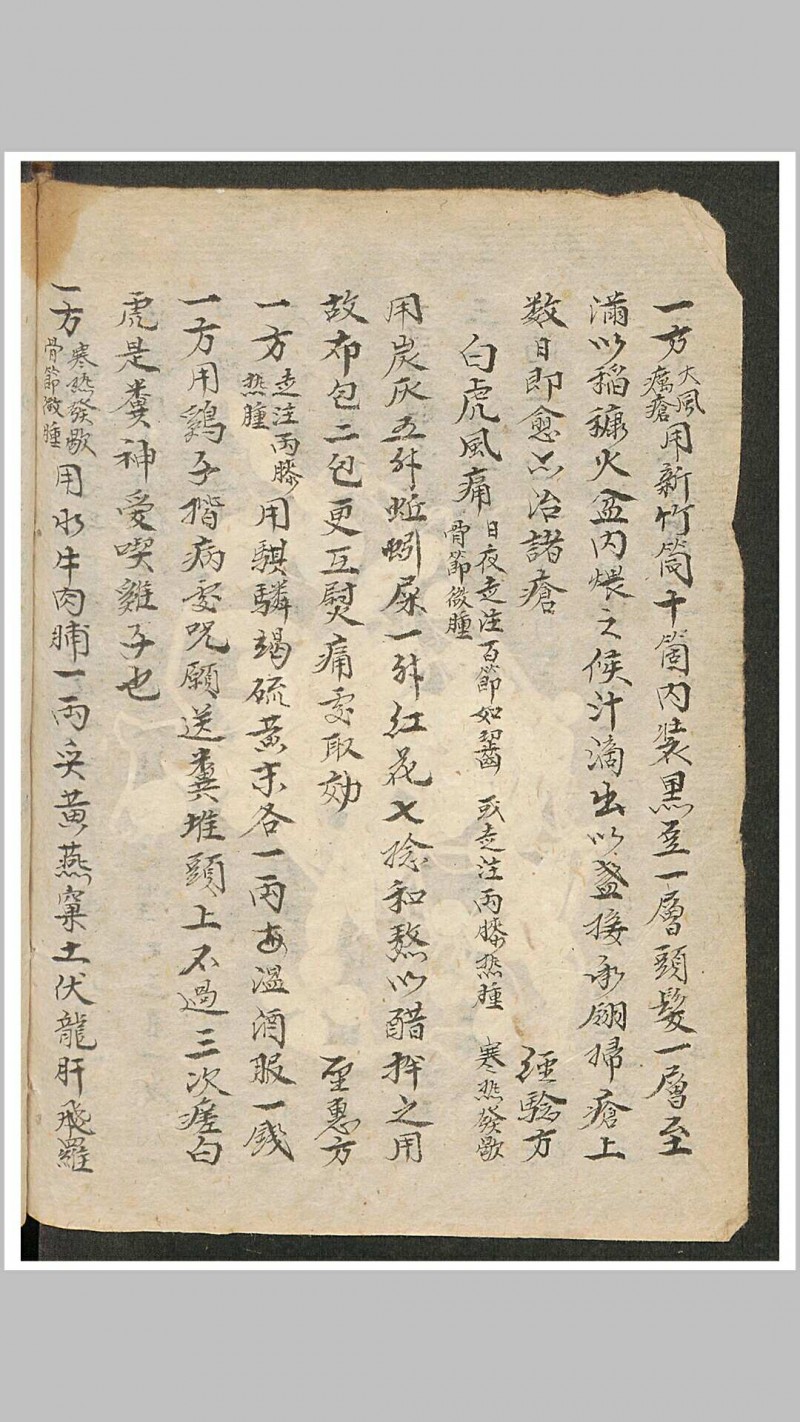 一方大風癘瘡用新竹筒十箇內裝黑豆一層頭髮一層至
滿以稻糠火盆內煨之候汁滴出以盞接承翎掃瘡上
数日即愈亦治諸瘡 經驗方
白虎風痛日夜走注百節如齧 或走注両膝𤍠腫 寒𤍠發歇骨節微腫
用炭灰五升蚯蚓屎一升紅花七捻和熬以醋拌之用
故布包二包更互熨痛𠙚取効 聖惠方
一方走注両膝𤍠腫用騏驎竭硫黃末各一両每溫酒服一錢
一方用鷄子揩病𠙚咒願送糞堆頭上不過三次瘥白
虎是糞神愛喫雞子也
一方寒𤍠發歇骨節微腫用水牛肉脯一両炙黃燕窠土伏龍肝飛羅